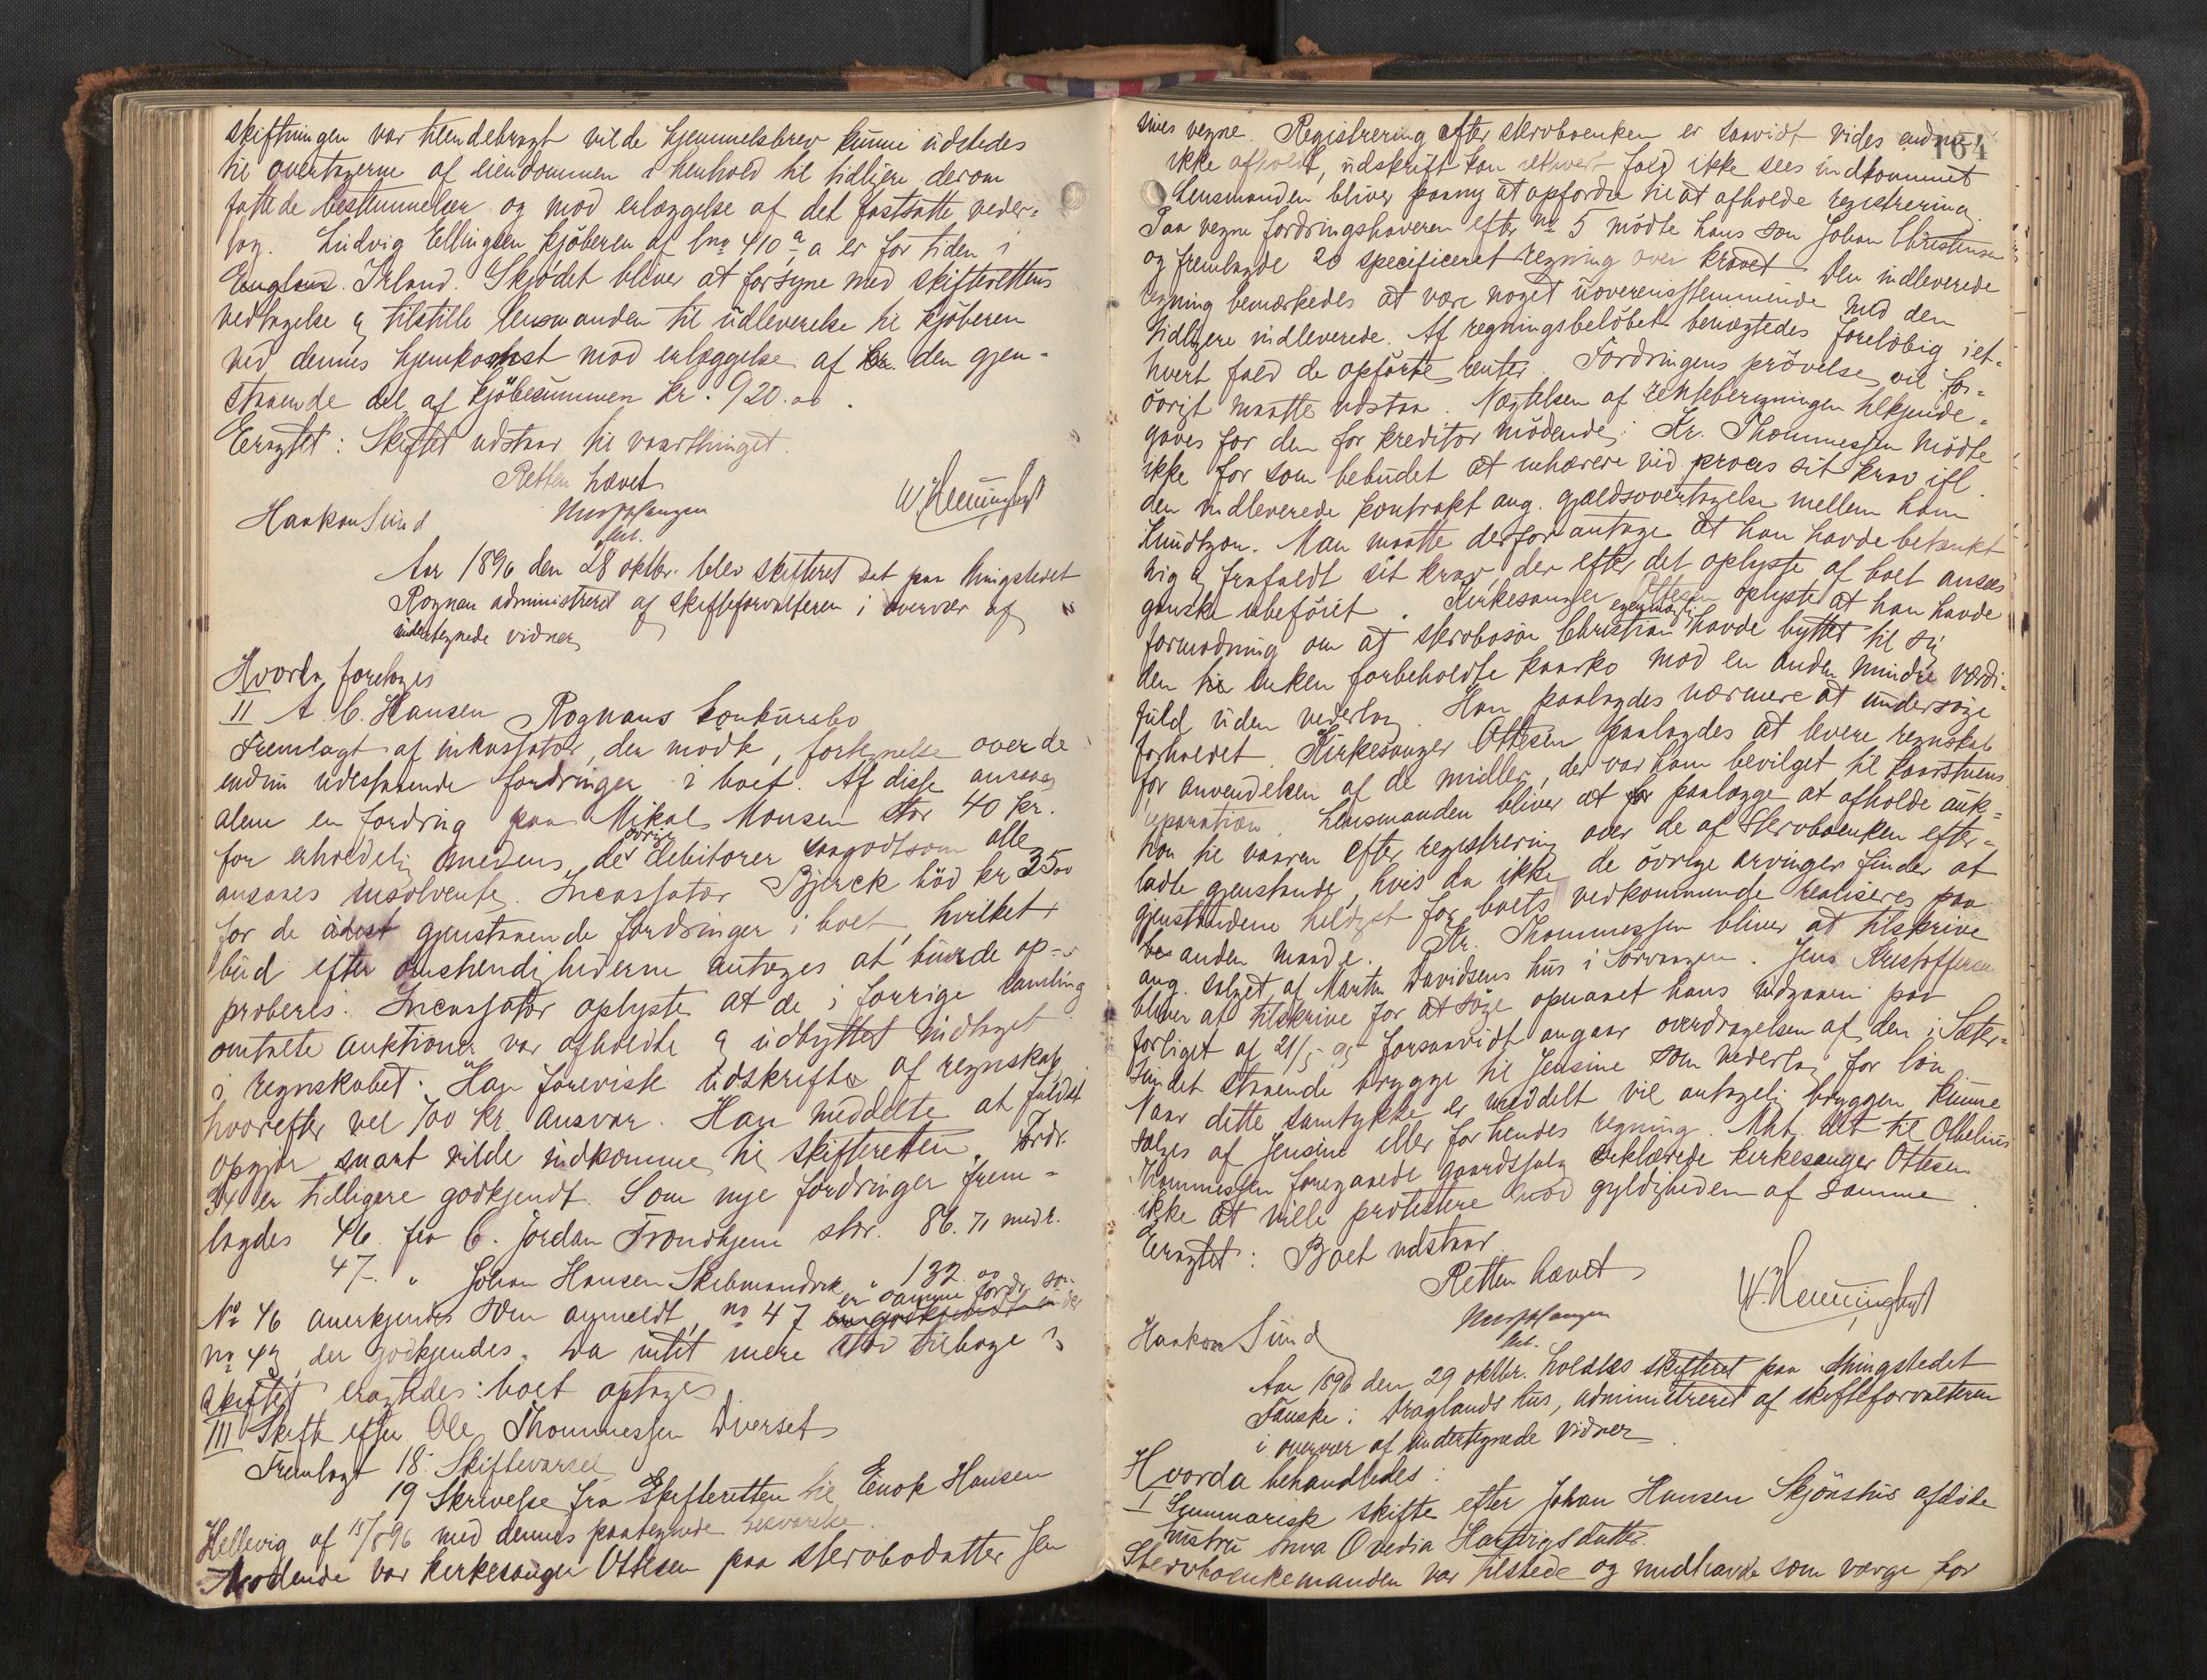 skiftningen var tilendebragt vilde hjemmelsbrev kunne udstedes
til overtagerne af eiendommen i henhold til tidligere derom
fattede bestemmelser og mod erlæggelse af det fastsatte veder-
lag. Ludvig Ellingsen kjøberen af bno 410 a er for tiden i
England. Irland. Skjødet bliver at forsyne med skifterettens
vedtagelse og tilstille lensmanden til udleverelse til kjøberen
ved dennes hjemkomst mod erlæggelse af kr. den gjen-
staaende del af kjøbesummen kr. 920.00.
Eragtet: Skiftet udstaar til vaarthinget.
Retten hævet
Haakon Sund
Aar 1896 den 28 oktbr. blev skifteret sat paa thingstedet
Rognan administreret af skifteforvalteren i overvær af
undertegnede vidner
Hvorda foretoges
II A. C. Hansen Rognans konkursbo
Fremlagt af inkassator, der mødte, fortegnelse over de
endnu udestaaende fordringer i boet. Af disse ansaaes
alene en fordring paa Mikal Monsen stor 40 kr.
for erholdelig medens de øvrige debitorer saagodtsom alle
ansaaes insolvente. Incassator Bjerck bød kr 35 00
for de gjenstaaende fordringer i boet, hvilket
bud efter omstendighederne antages at burde ap-
proberes. Incassator oplyste at de i forrige samling
omtalte auktioner var afholdte og udbyttet indtaget
i regnskabet. Han foreviste udskrifter af regnskab
hvorefter vel 700 kr. ansvar. Han meddelte at fuldst
opgjør snart vilde indkomme til skifteretten. Fordr.
er tidligere godkjendt. Som nye fordringer frem-
lagdes 46. fra C. Jordan Trondhjem stor. 86.71 med r.
47. " Johan Hansen Skibmandvik " 132.00
No 46 anerkjendes som anmeldt, no 47 er samme fordr. som
no 43 der godkjendes. Da intet mere stod tilbage i
skiftet eragtedes: boet optages
III Skifte efter Ole Thommessen Dverset
Fremlagt 18. Skiftevarsel
19 Skrivelse fra Skifteretten til Enok Hansen
Hellevig af 15/8 96 med dennes paategnede besvarelse.
Mødende var kirkesanger Ottesen paa stervbodatter Jen
sines vegne. Registrering efter stervboenken er saavidt vides endnu
164
ikke afholdt, udskrift kan iethvert fald ikke sees indkommet
Lensmanden bliver paany at opfordre til at afholde registrering.
Paa vegne fordringshaveren efter no 5 mødte hans søn Johan Christensen
og fremlagde 20 specificeret regning over kravet. Den indleverede
regning bemærkedes at være noget uoverensstemmende med den
tidligere indleverede. Af regningsbeløbet benægtedes foreløbig iet-
hvert fald de opførte renter. Fordringens prøvelse vil for-
øvrigt maatte udstaa. Nægtelsen af renteberegningen tilkjende-
gaves for den for kreditor mødende. Kr. Thommessen mødte
ikke for som bebudet at inhærere ved proces sit krav ifl.
den indleverede kontrakt ang. gjældsovertagelse mellem ham
Knudtzon. Man maatte derfor antage at han havde betænkt
sig og frafaldt sit krav, der efter det oplyste af boet ansees
ganske ubeføiet. Kirkesanger Ottesen oplyste at han havde
formodning om at stervbosøn Christian egenmægtig havde byttet til sig
den til enken forbeholdte kaarko mod en anden mindre værdi-
fuld uden vederlag. Han paalagdes nærmere at undersøge
forholdet. Kirkesanger Ottesen paalagdes at levere regnskab
for anvendelsen af de midler, der var ham bevilget til kaarstuens
reparation. Lensmanden bliver at paalægge at afholde auk-
tion til vaaren efter registrering over de af stervboenken efter-
ladte gjenstande, hvis da ikke de øvrige arvinger finder at
gjenstandene heldigst for boets vedkommende realiseres paa
anden maade. Kr. Thommessen bliver at tilskrive
ang. salget af Martin Davidsens hus i Sørvaagen. Jens Kristoffersen
bliver at tilskrive for at søge opnaaet hans indgaaen paa
forliget af 21/5 95 forsaavidt angaar overdragelsen af den i Sæter-
sundet staaende brygge til Jensine som vederlag for løn
Naar dette samtykke er meddelt vil antagelig bryggen kunne
sælges af Jensine eller for hendes regning. Mht. det til Othelius
Thommessen foregaaede gaardssalg erklærede kirkesanger Ottesen
ikke at ville protestere mod gyldigheden af samme
Eragtet: Boet udstaar
Retten hævet
Haakon Sund
Aar 1896 den 29 oktbr. holdtes skifteret paa thingstedet
Fauske i Draglands hus, administreret af skifteforvalteren
i overvær af undertegnede vidner
Hvorda behandledes:
I Summarisk skifte efter Johan Hansen Skjønshus afdøde
hustru Anna Ovedia Hartvigsdatter.
Stervboenkemanden var tilstede og medhavde som værge for